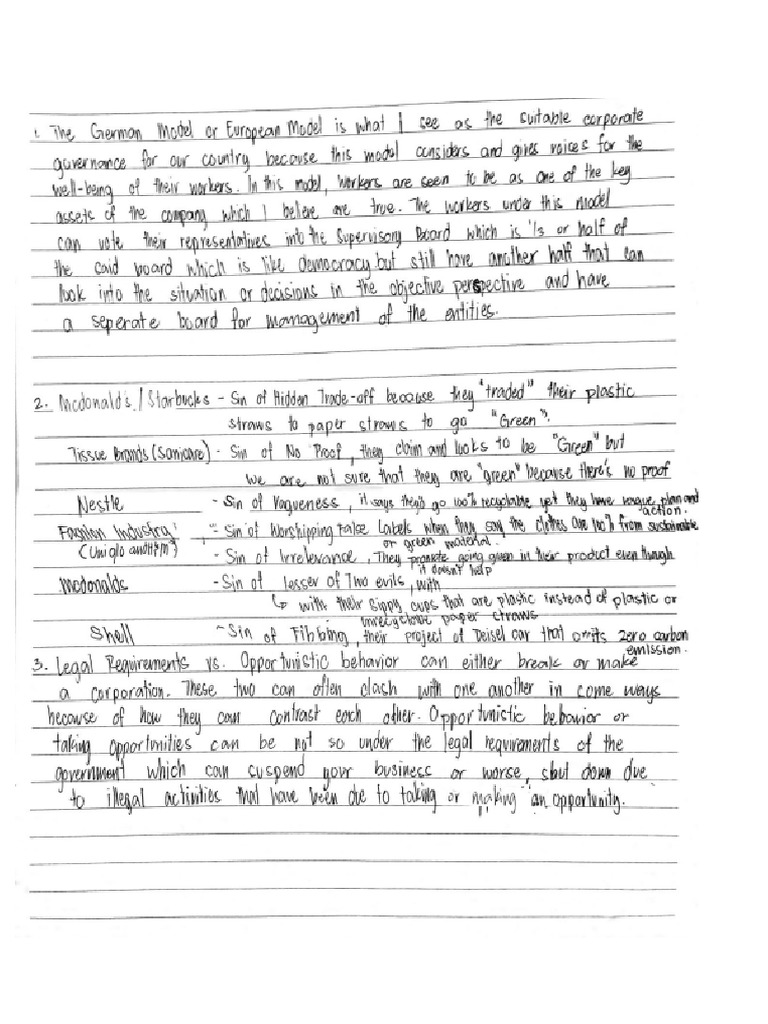 1. The German Model or European Model is what I see as the suitable corporate
governance for our country because this model considers and gives voices for the
well-being of their workers. In this model, workers are seen to be as one of the key
assets of the company which I believe are true. The workers under this model
can vote their representatives into the Supervisory Board which is 1/3 or half of
the said board which is like democracy but still have another half that can
look into the situation or decisions in the objective perspective and have
a seperate board for management of the entities.
2. Mcdonald's / Starbucks - Sin of Hidden Trade-off because they "traded" their plastic
straws to paper straws to go "Green".
Tissue Brands (Sanicare) - Sin of No Proof, they claim and looks to be "Green" but
we are not sure that they are "green" because there's no proof
Nestle - Sin of Vagueness, it says they'll go 100% recyclable yet they have vague plan and
action.
Fashion Industry - Sin of Worshipping False Labels when they say the clothes are 100% from sustainable
or green material.
(Uniqlo and H&M) - Sin of Irrelevance, They promote going green in their product even though
it doesn't help
Mcdonalds - Sin of lesser of Two evils, with
↳ with their sippy cups that are plastic instead of plastic or
unrecyclable paper straws
Shell - Sin of Fibbing, their project of Deisel car that omits zero carbon
emission.
3. Legal Requirements vs. Opportunistic behavior can either break or make
a corporation. These two can often clash with one another in some ways
because of how they can contrast each other. Opportunistic behavior or
taking opportunities can be not so under the legal requirements of the
government which can suspend your business or worse, shut down due
to illegal activities that have been due to taking or making an opportunity.